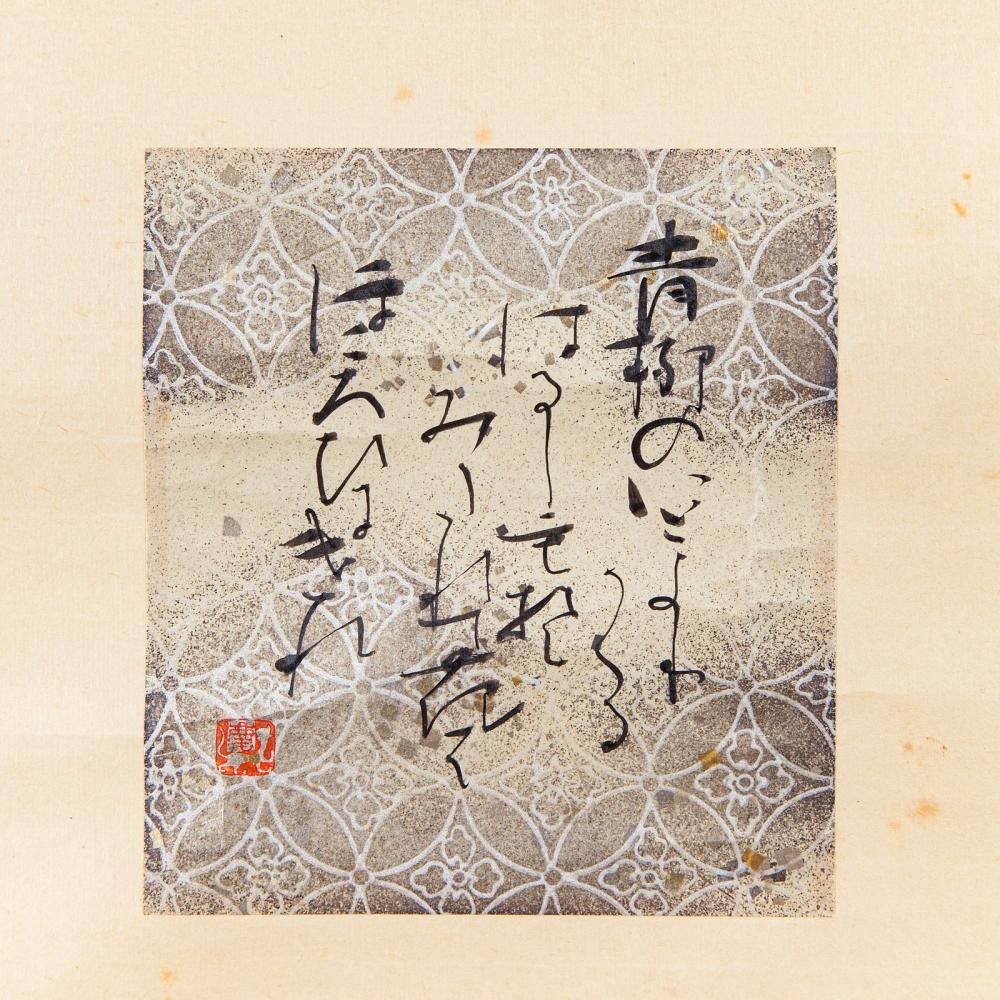 青柳のいとよりか
くる
はるしもぞ
みたれて花の
ほころひにける